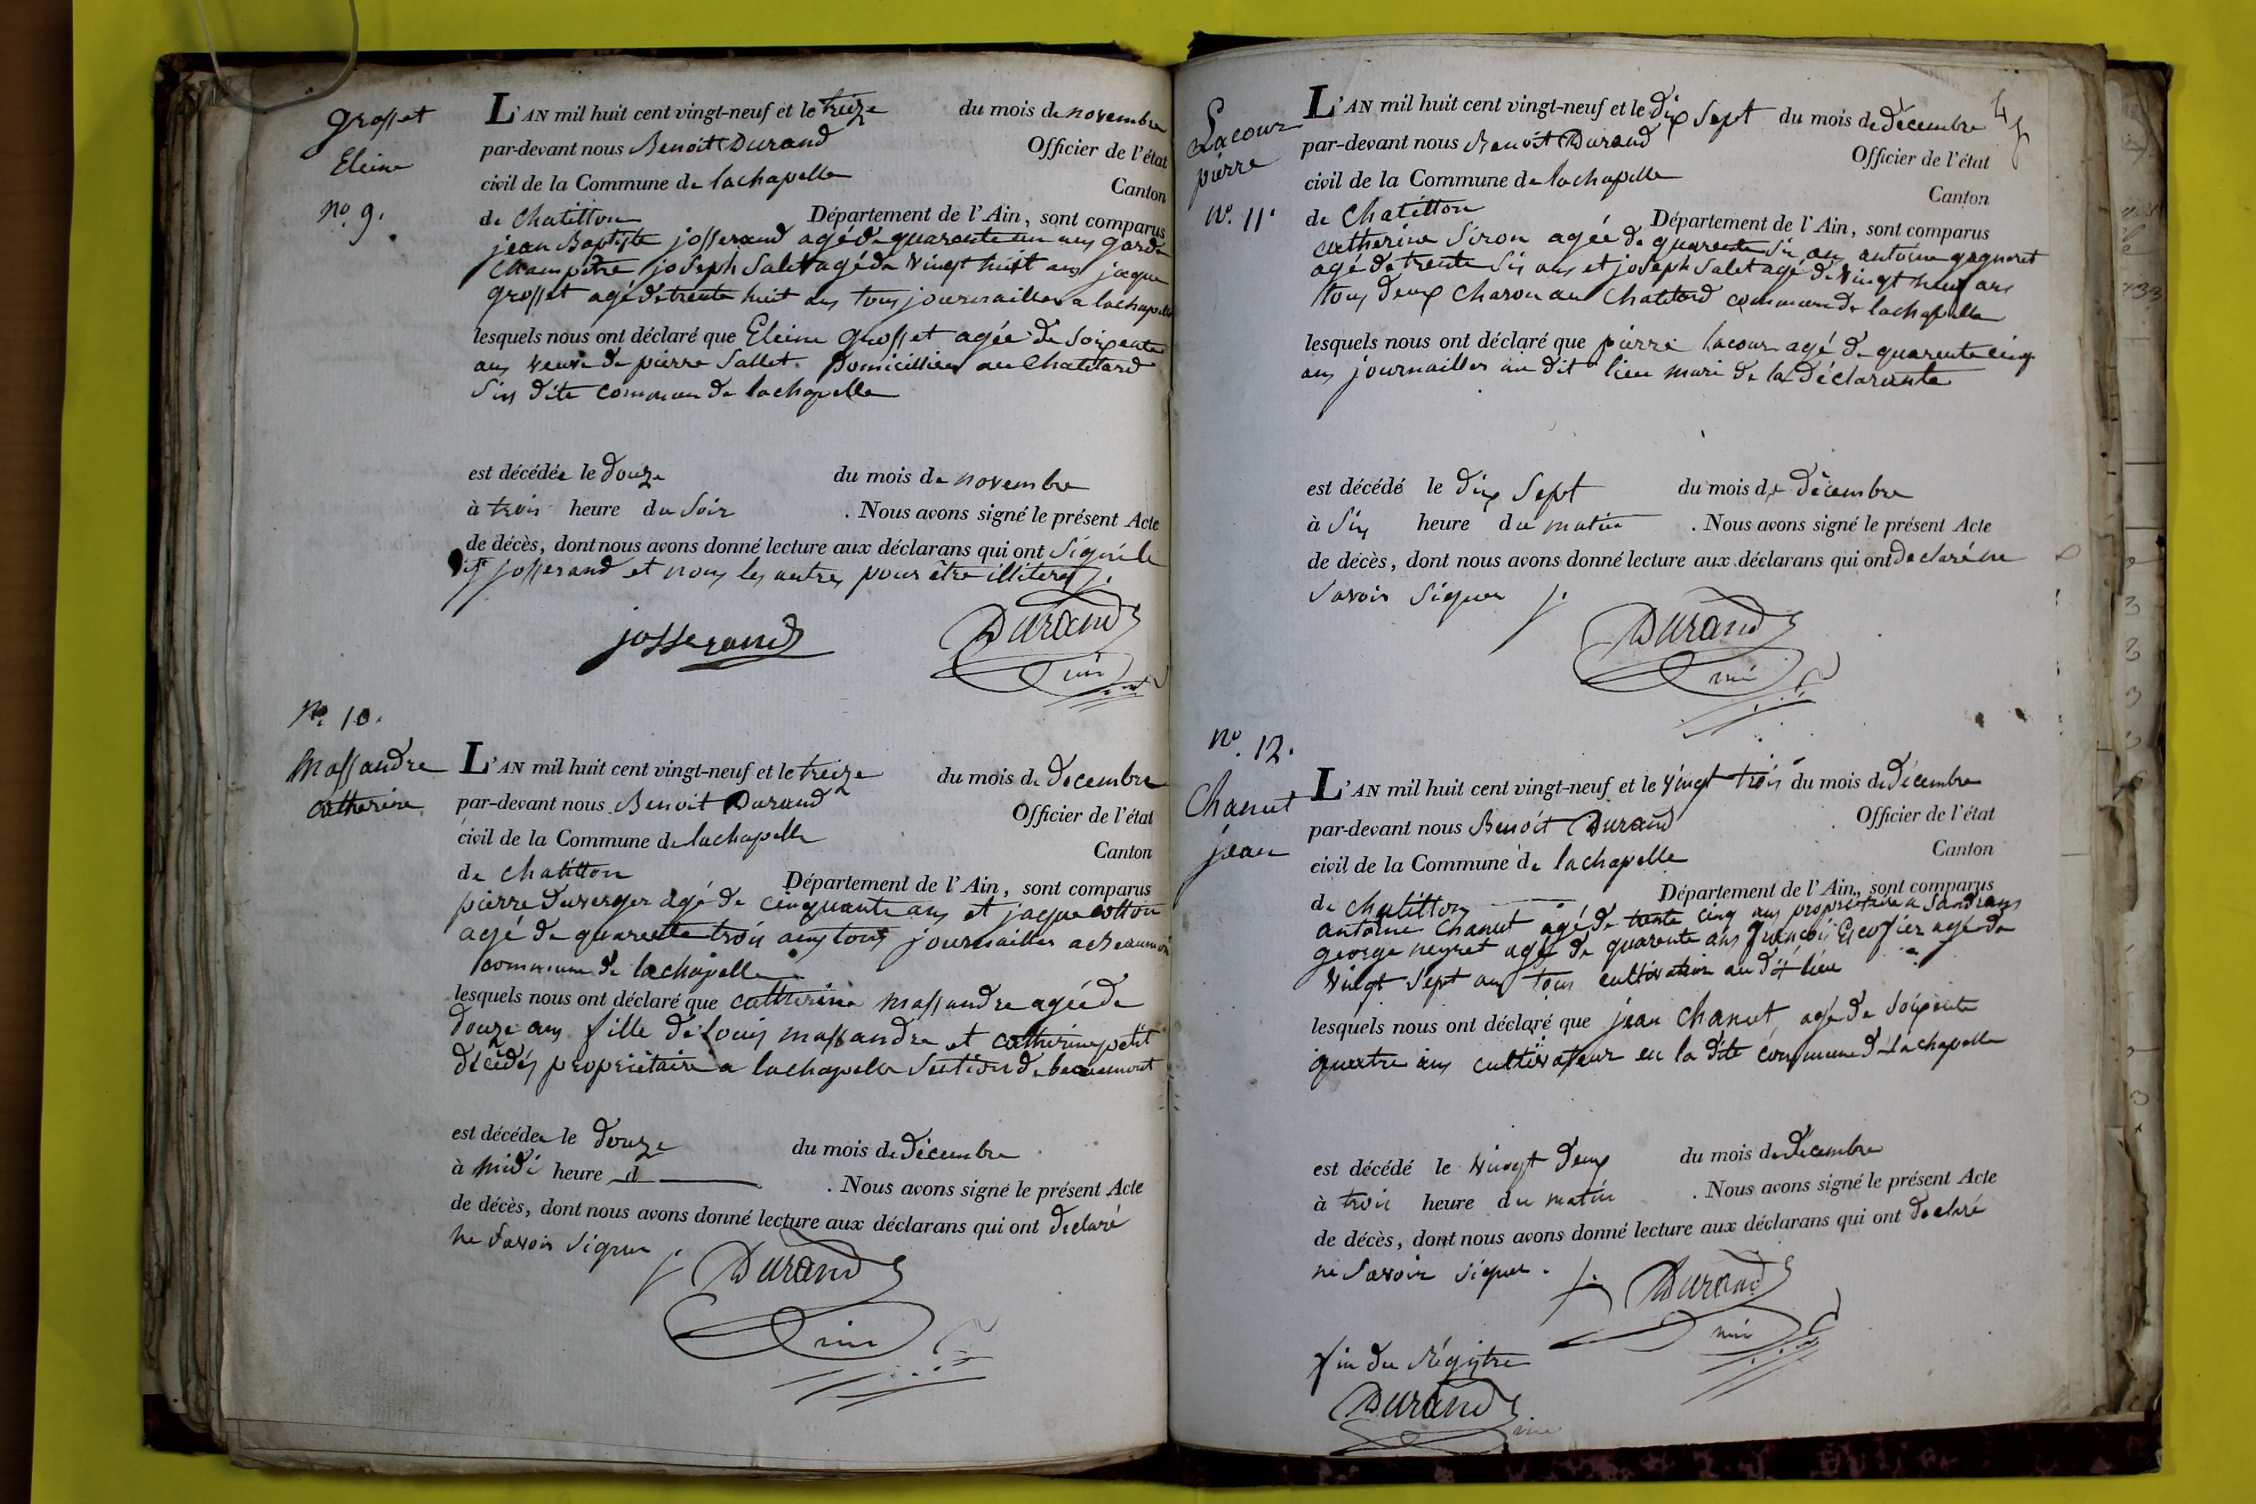 grosset
Eleine
no. 9.
L'AN mil huit cent vingt-neuf et le treize du mois de novembre
par-devant nous Benoit Durand Officier de l'état
civil de la Commune de lachapelle Canton
de Chatillon Département de l'Ain, sont comparus
jean Baptiste josserand agé de quarante un ans garde
Champêtre joseph Salet agé de vingt huit ans jaque
grosset agé de trente huit ans tous journaillier a lachapelle
lesquels nous ont déclaré que Eleine grosset agée de soixante
ans veuve de pierre Sallet Domicilliée au Chatelard
Sus dite commune de lachapelle
est décédée le douze du mois de novembre
à trois heure du Soir . Nous avons signé le présent Acte
de décès, dont nous avons donné lecture aux déclarans qui ont Signé le
dit josserand et non les autres pour être illiterés.
josserand
Durand
mé
no. 10.
Massandre
catherine
L'AN mil huit cent vingt-neuf et le treize du mois de decembre
par-devant nous Benoit Durand Officier de l'état
civil de la Commune de lachapelle Canton
de chatillon Département de l'Ain, sont comparus
pierre Duverger agé de cinquante ans et jaque cotton
agé de quarente trois ans tous journaillier a Beaumont
commune de lachapelle
lesquels nous ont déclaré que catherine massandre agée de
douze ans fille de Louis massandre et catherine petit
décédés propriétaire a lachapelle Section de beaumont
est décédée le douze du mois de décembre
à midi heure d . Nous avons signé le présent Acte
de décès, dont nous avons donné lecture aux déclarans qui ont declaré
ne Savoir Signer
Durand
Lacour
pierre
no. 11.
L'AN mil huit cent vingt-neuf et le dix Sept du mois de decembre
par-devant nous Benoit Durand Officier de l'état
civil de la Commune de lachapelle Canton
de Chatillon Département de l'Ain, sont comparus
catherine Siron agée de quarente Six ans antoine gagneret
agé de trente Six ans et joseph Salet agé de vingt neuf ans
tous deux Charon au Chatelard commune de lachapelle
lesquels nous ont déclaré que pierre lacour agé de quarente cinq
ans journaillier au dit lieu mari de la déclarante
est décédé le dix Sept du mois de décembre
à Six heure du matin . Nous avons signé le présent Acte
de décès, dont nous avons donné lecture aux déclarans qui ont declaré ne
Savoir Signer
Durand
no. 12.
Chanut
jean
L'AN mil huit cent vingt-neuf et le vingt trois du mois de décembre
par-devant nous Benoit Durand Officier de l'état
civil de la Commune de lachapelle Canton
de chatillon Département de l'Ain, sont comparus
antoine Chanut agé de trente cinq ans propriétaire a Sandrans
george neyret agé de quarente ans françois Escoffier agé de
vingt Sept ans tous cultivateur au dit lieu
lesquels nous ont déclaré que jean Chanut agé de Soixente
quatre ans cultivateur en la dite commune de lachapelle
est décédé le vingt deux du mois de decembre
à trois heure du matin . Nous avons signé le présent Acte
de décès, dont nous avons donné lecture aux déclarans qui ont declaré
ne Savoir Signer.
Durand
fin du Régistre
Durand